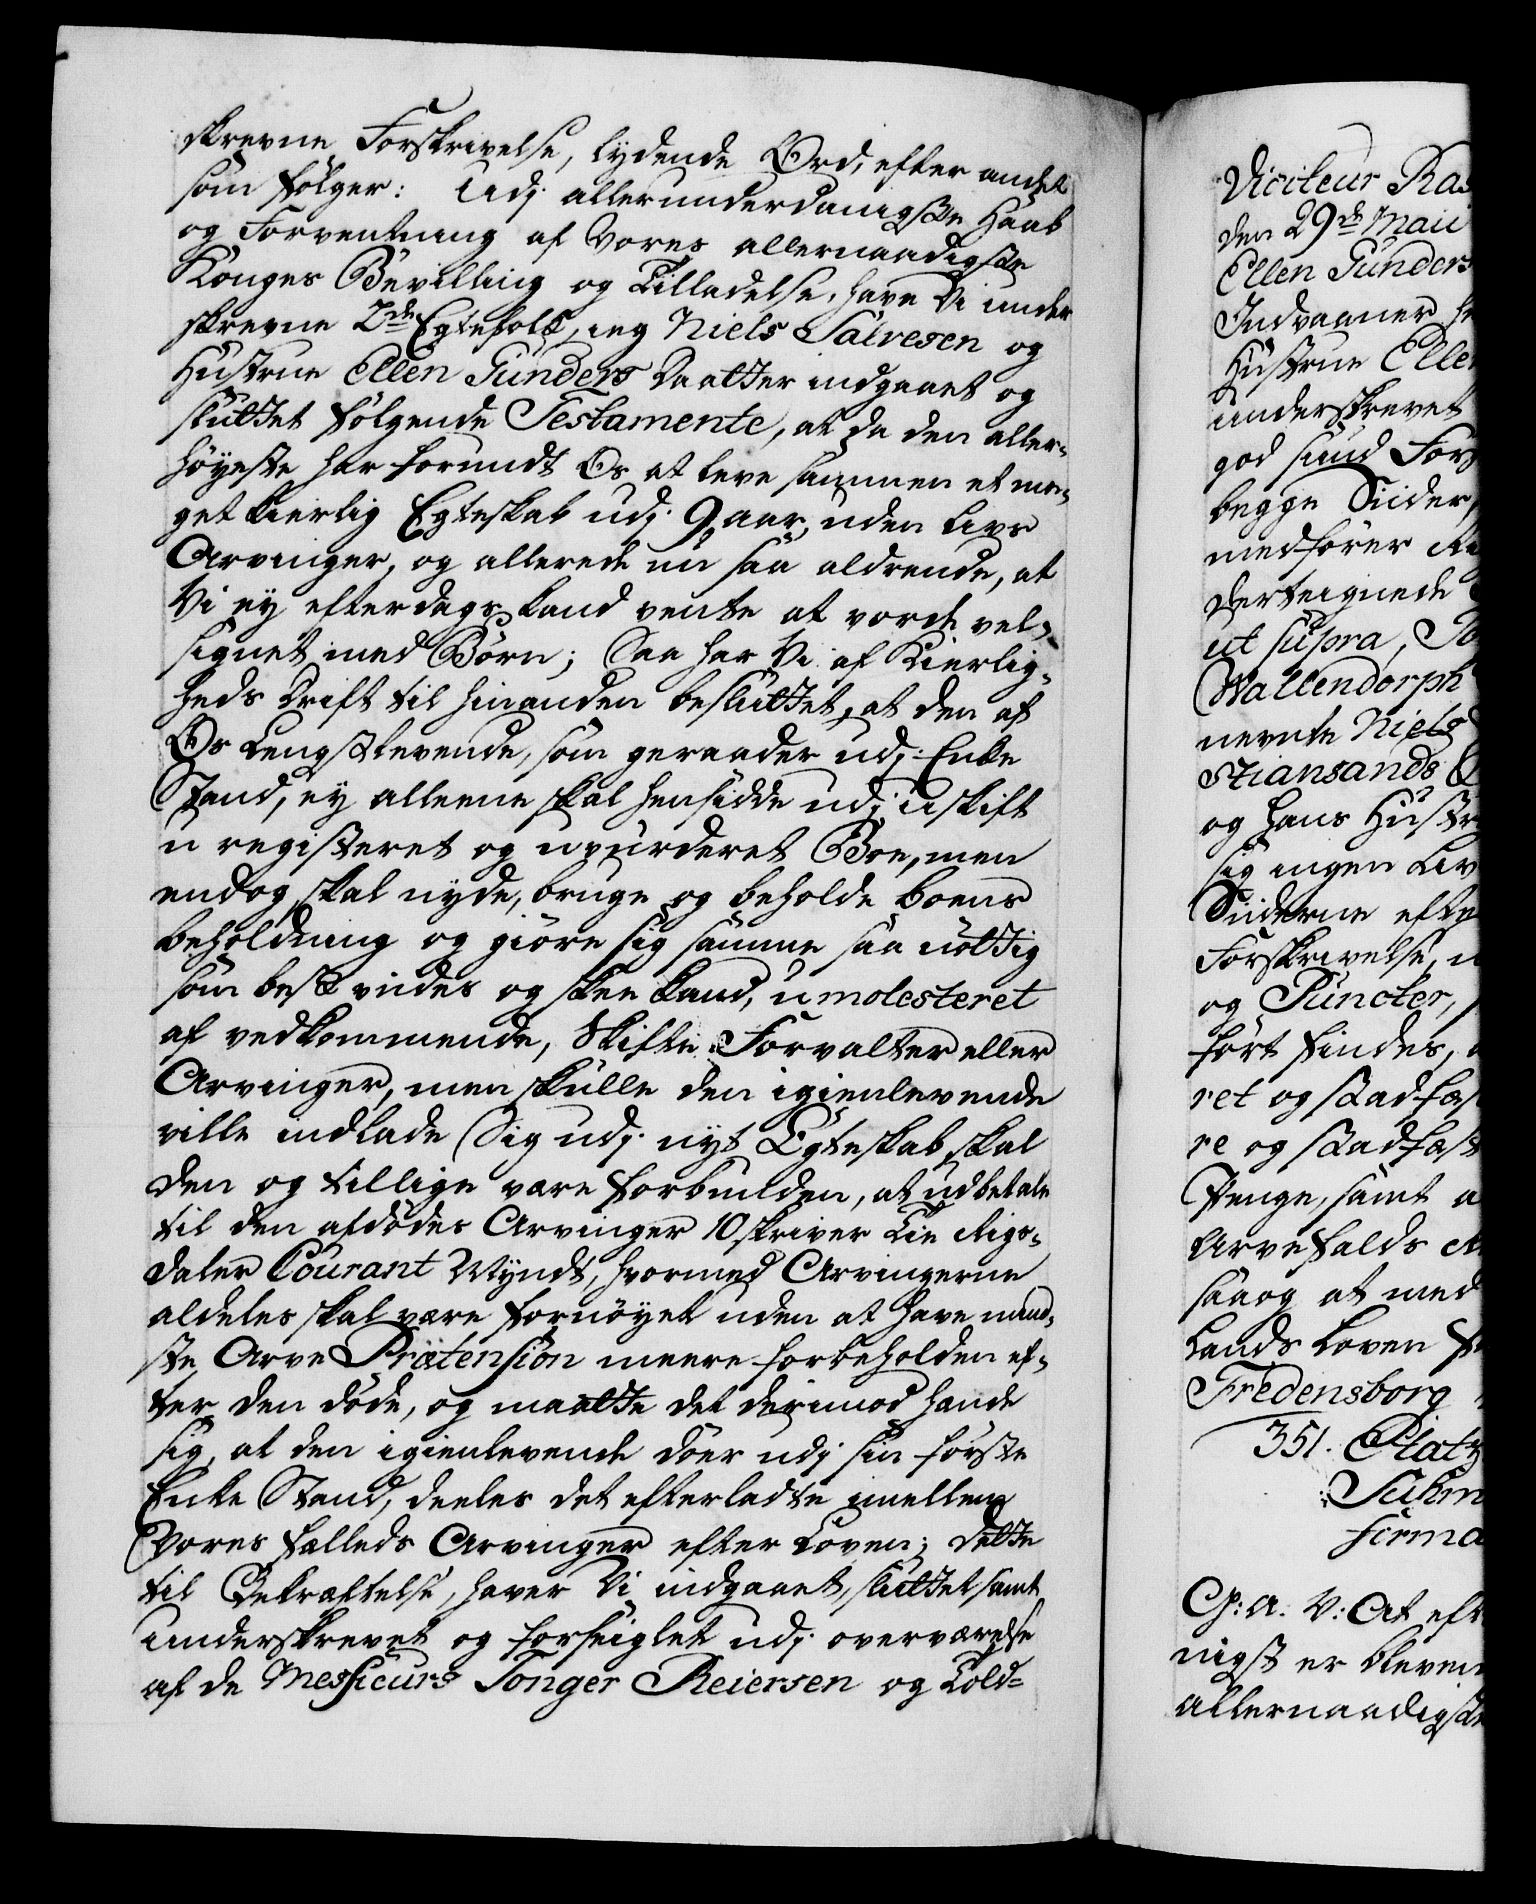 skrevne Forskrivelse, lydende Ord efter andet
som følger: Udj allerunderdanigste Haab
og Forventning af Vores allernaadigste
Konges Bevilling og Tilladelse, have Vi under
skrevne 2de Egtefolk, ieg Niels Salvesen og
Hustrue Ellen Gunders Daatter indgaaet og
sluttet følgende Testamente, at da den aller-
høyeste har forundt Os at leve sammen et me-
get kierlig Egteskab udj 9 aar, uden Livs
Arvinger, og allerede nu saa aldrende, at
Vi ey efterdags kand vente at vorde vel-
signet med Børn; Saa har Vi af Kierlig-
heds Drift til hinanden besluttet, at den af
Os Lengstlevende, som geraader udj Enke
Stand, ey alleene skal hensidde udj uskift
u registeret og uvurderet Boe, men
endog skal nyde, bruge og beholde Boens
beholdning og giøre sig samme saa nøttig
som best vides og skee kand, u molesteret
af vedkommende, Skifte Forvalter eller
Arvinger, men skulle den igienlevende
ville indlade Sig udj nyt Egteskab, skal
den og tillige være forbunden, at udbetale
til den afdødes Arvinger 10 skriver Tie Rigs-
daler Courant Myndt, hvormed Arvingerne
aldeles skal være fornøyet uden at have mind-
ste Arve Prætension meere forbeholden ef-
ter den døde, og maatte det derimod hende
sig, at den igienlevende døer udj sin første
Enke Stand, deeles det efterladte imellem
Vores fælleds Arvinger efter Loven; dette
til Bekræftelse, haver Vi indgaaet, sluttet samt
underskrevet og forseiglet udj overværelse
af de Messieurs Tonger Reiersen og Told-
Visiteur Ras
den 29de Maii
Ellen Gunders
Indvaaner he
Hustrue Ellen
underskrevet
god sund For
begge Siider,
medfører
derteignede
ut supra,
Wallendorph
nevnte Niels
stiansands
og hans Hustr
sig ingen Liv
Siiderne efte
Forskrivelse,
og Puncter,
ført findes,
ret og stadfæs
re og stadfæst
Penge, samt a
Arvefalds
saaog at med
Lands Loven
Fredensborg
351.
firma
C: A: V: At eft
nigst er bleven
allernaadigste